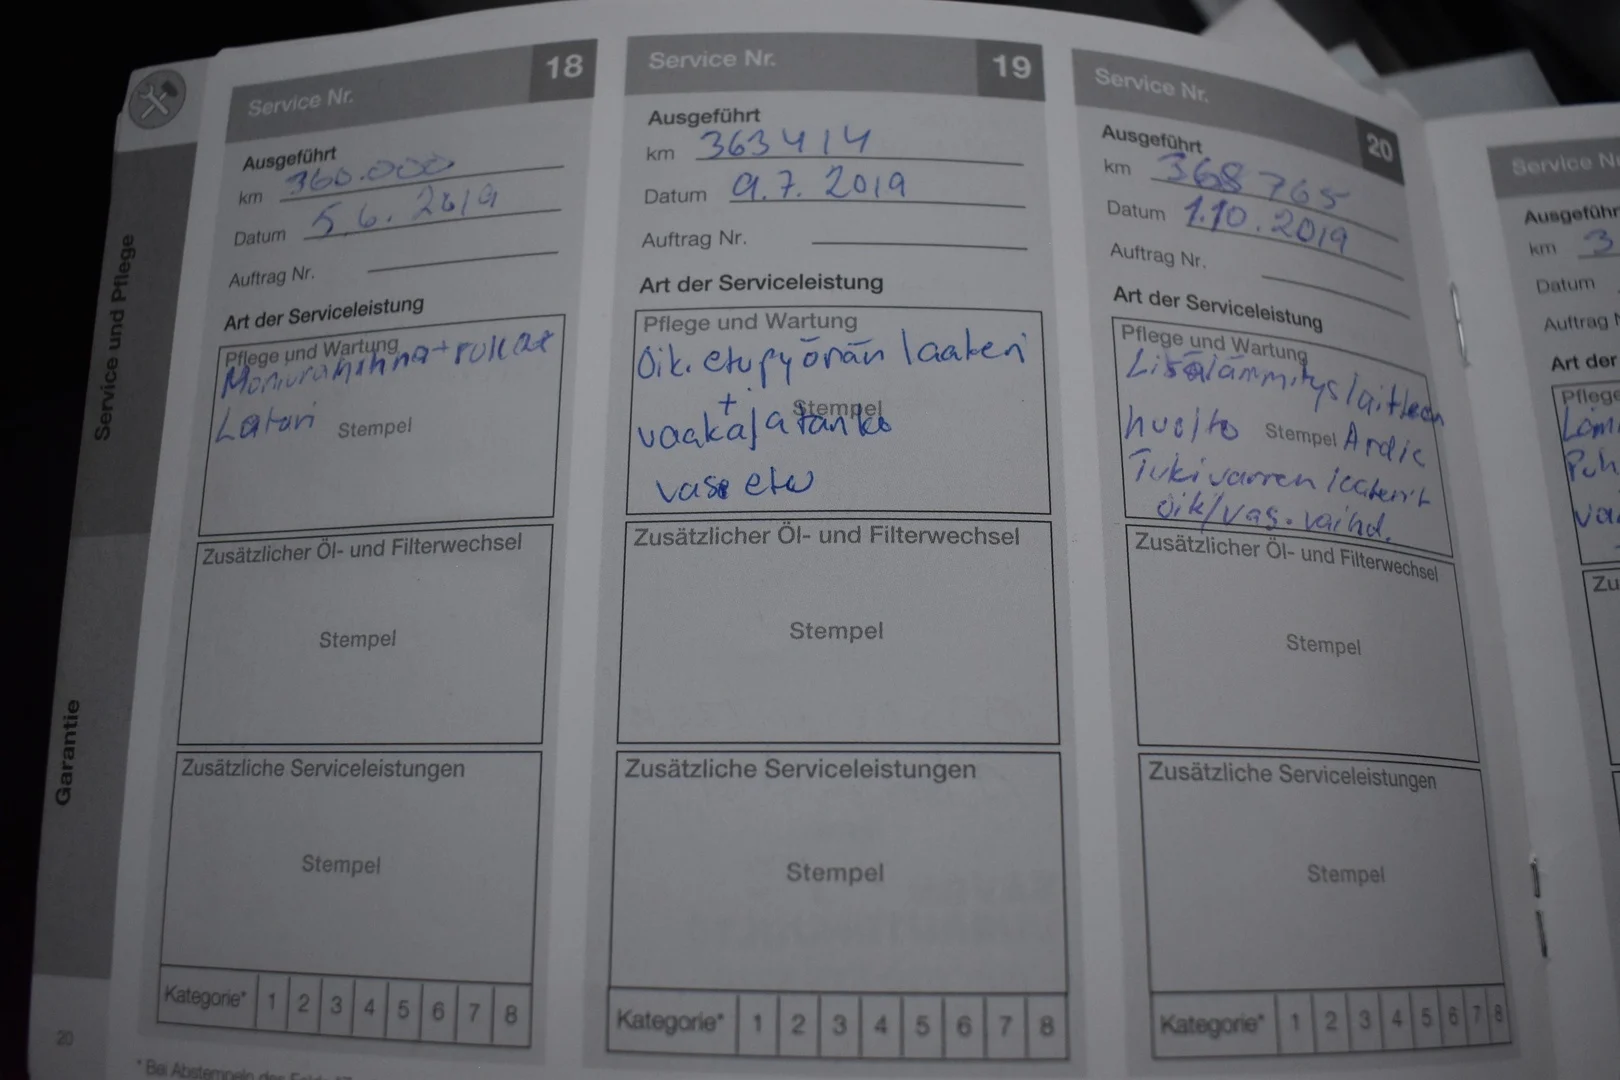 Service und Pflege
Garantie
20
Service Nr. 18
Ausgeführt
km 360.000
Datum 5.6.2019
Auftrag Nr.
Art der Serviceleistung
Pflege und Wartung
Moniurahihna + rullat
Laturi
Stempel
Zusätzlicher Öl- und Filterwechsel
Stempel
Zusätzliche Serviceleistungen
Stempel
Kategorie* 1 2 3 4 5 6 7 8
* Bei Abstempeln des
Service Nr. 19
Ausgeführt
km 363414
Datum 9.7.2019
Auftrag Nr.
Art der Serviceleistung
Pflege und Wartung
Oik. etupyörän laakeri
+
Stempel
vaakaja tanko
vase etu
Zusätzlicher Öl- und Filterwechsel
Stempel
Zusätzliche Serviceleistungen
Stempel
Kategorie* 1 2 3 4 5 6 7 8
Service Nr. 20
Ausgeführt
km 368765
Datum 1.10.2019
Auftrag Nr.
Art der Serviceleistung
Pflege und Wartung
Lisälämmityslaitteen
huolto Stempel Ardic
Tukivarren laakerit
oik/vas. vaihd.
Zusätzlicher Öl- und Filterwechsel
Stempel
Zusätzliche Serviceleistungen
Stempel
Kategorie* 1 2 3 4 5 6 7 8
Service N
Ausgeführ
km 3
Datum
Auftrag
Art der
Pflege
Zu